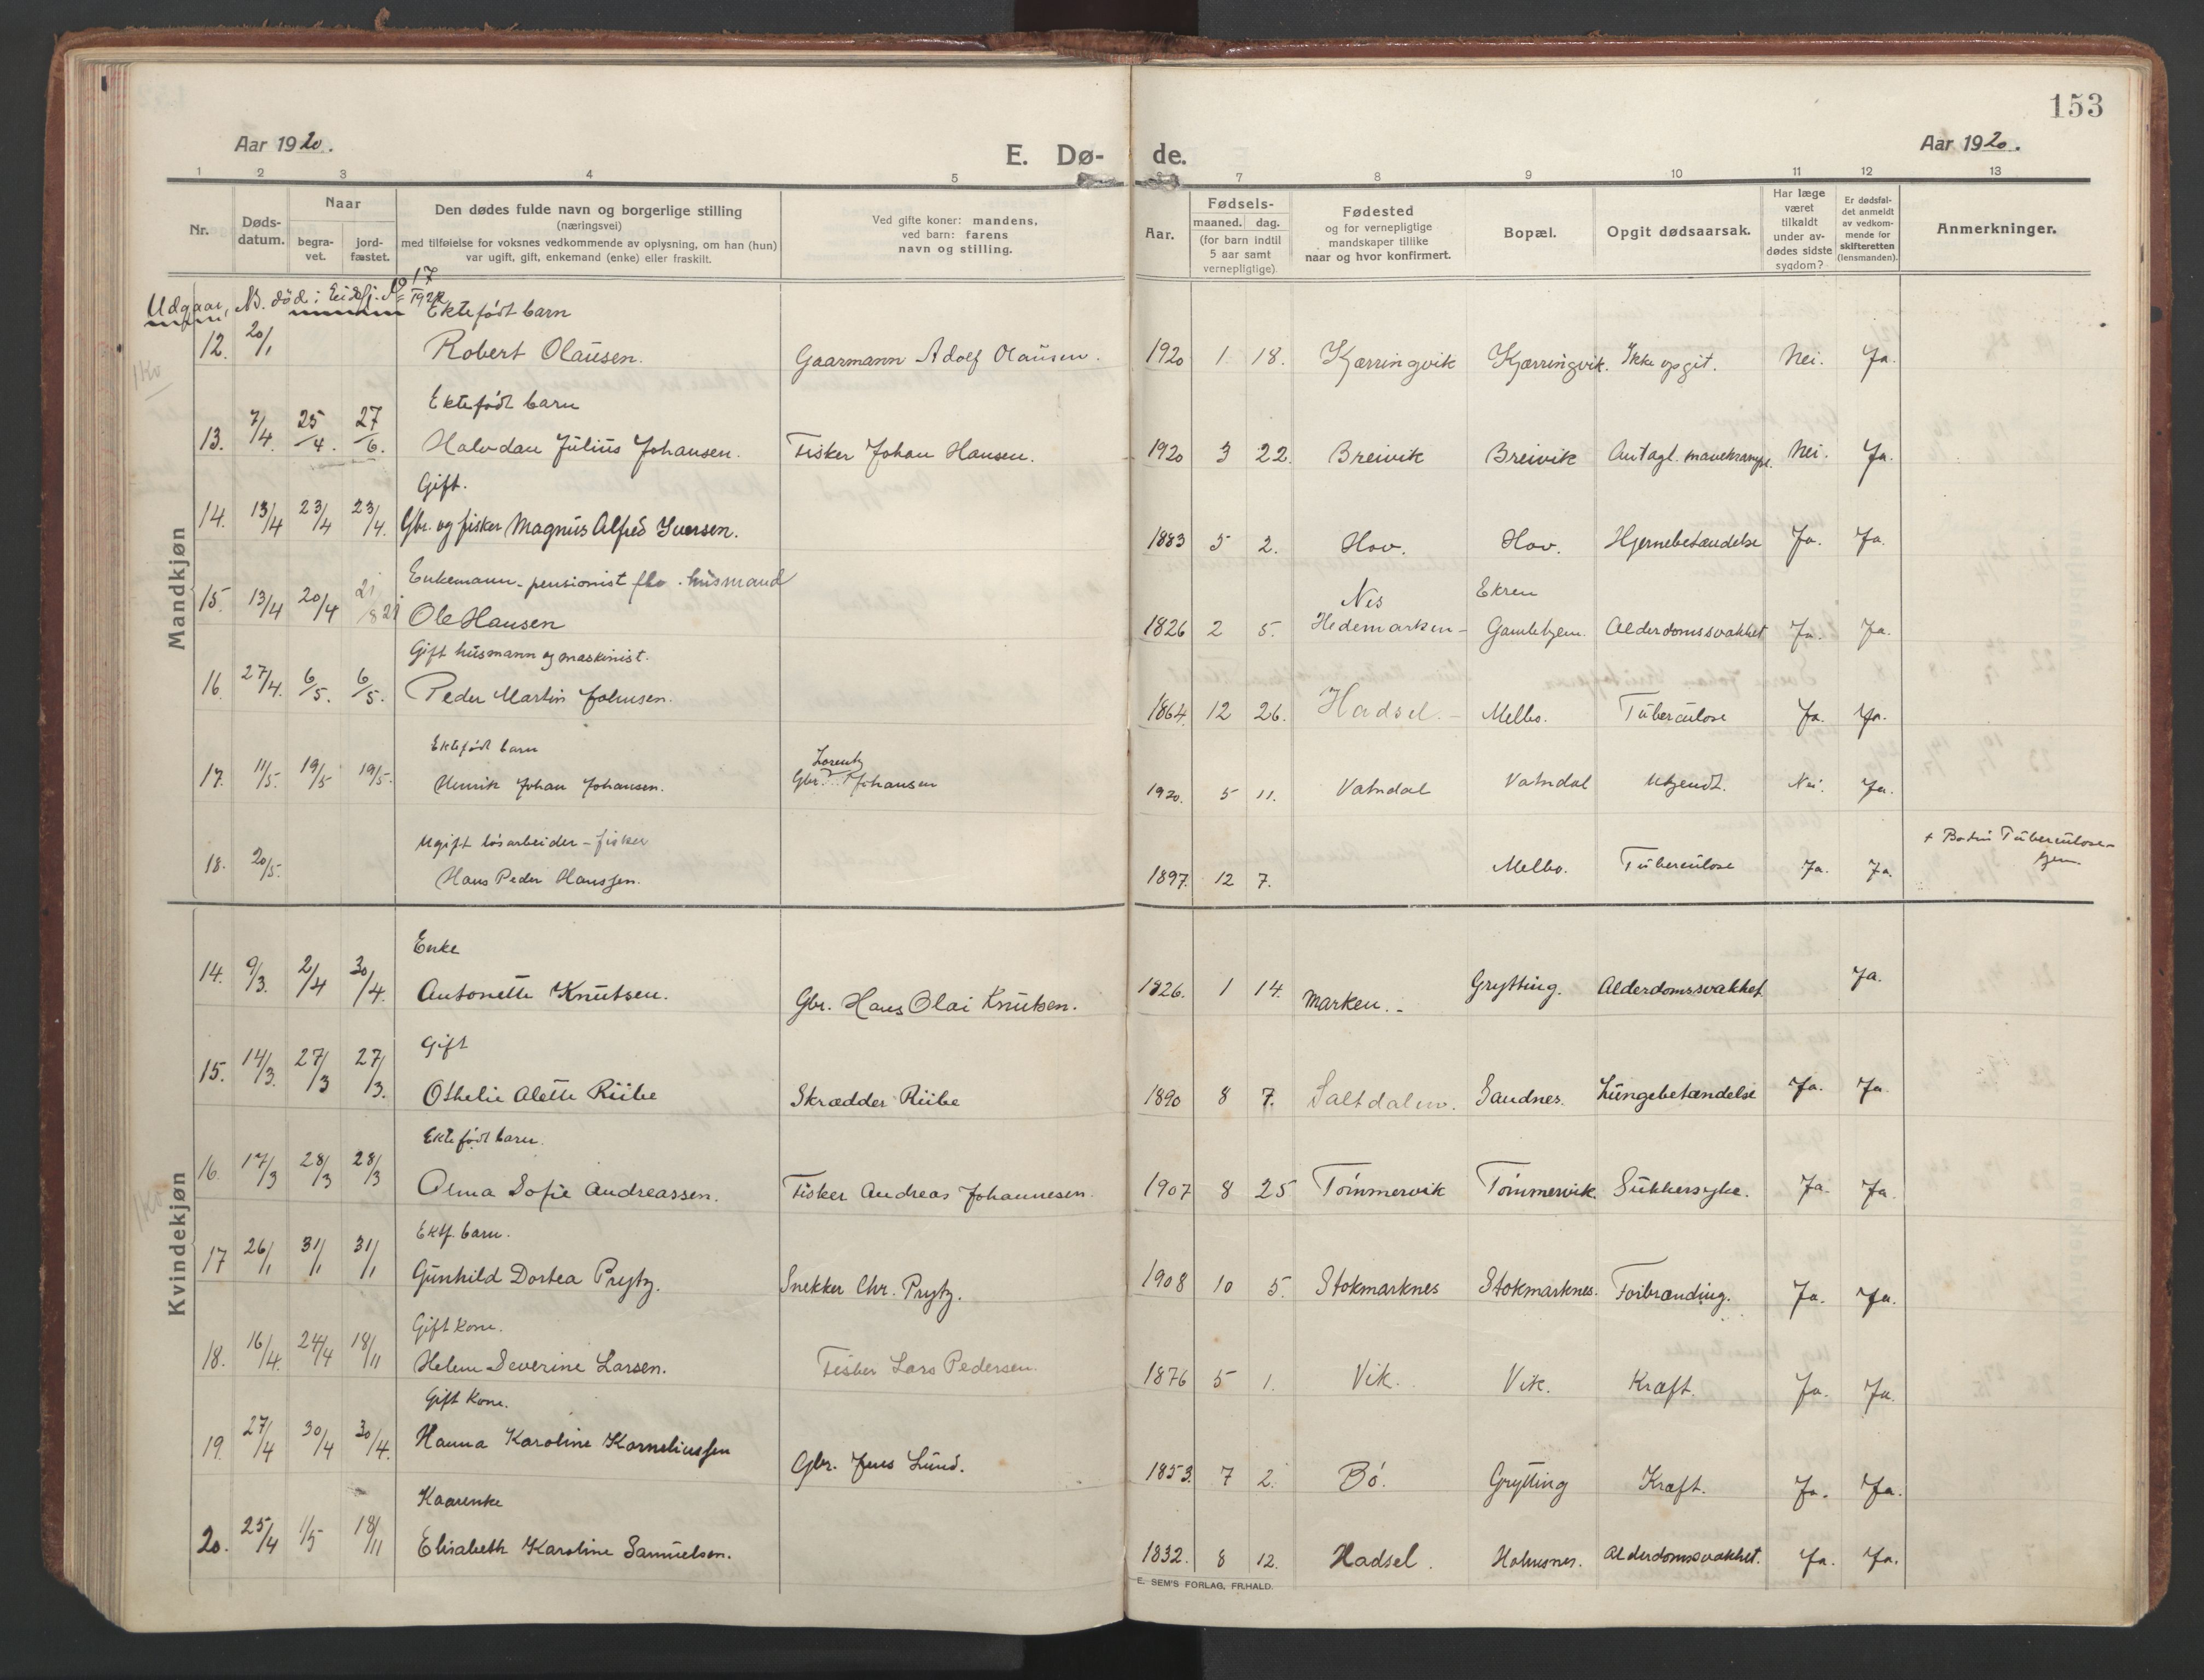 153
Aar 1920.
E. Dø- de.
Aar 1920.
1 2 3 4 5 7 8 9 10 11 12 13
Nr.
Døds-
datum.
Naar
begra-
vet.
jord-
fæstet.
Den dødes fulde navn og borgerlige stilling
(næringsvei)
med tilføielse for voksnes vedkommende av oplysning, om han (hun)
var ugift, gift, enkemand (enke) eller fraskilt.
Ved gifte koner: mandens.
ved barn: farens
navn og stilling.
Aar.
Fødsels-
maaned. dag.
(for barn indtil
5 aar samt
vernepligtige).
Fødested
og for vernepligtige
mandskaper tillike
naar og hvor konfirmert.
Bopæl.
Opgit dødsaarsak.
Har læge
været
tilkaldt
under av-
dødes sidste
sygdom?
Er dødsfal-
det anmeldt
av vedkom-
mende for
skifteretten
(lensmanden).
Anmerkninger.
Mandkjøn
Udgaar, NB. død i
Ektefødt barn
12. 20/1 Robert Olausen. Gaarmann Adolf Olausen. 1920 1 18. Kjærringvik Kjærringvik. Ikke opgit. Nei. Ja.
Ektefødt barn
13. 7/4. 25/4. 27/6. Halvdan Julius Johansen. Fisker Johan Hansen. 1920 3 22. Breivik Breivik Antagl. mavekrampe. Nei. Ja.
Gift.
14. 13/4 23/4 23/4. Gbr. og fisker Magnus Alfred Iversen. 1883 5 2. Hov. Hov. Hjernebetændelse Ja. Ja.
Enkemann - pensionist fhv. husmand
15. 13/4 20/4 21/8 21 Ole Hansen 1826 2 5. Nes Hedemarken - Ekren Gamlehjem. Alderdomssvakhet Ja. Ja.
Gift husmann og maskinist.
16. 27/4. 6/5. 6/5. Peder Martin Johnsen. 1864. 12 26. Hadsel. - Melbo. Tuberculose Ja. Ja.
Ektefødt barn
17. 11/5. 19/5 19/5. Henrik Johan Johansen. Gbr. Lorentz Johansen 1920. 5 11. Vatndal Vatndal Ukjendt. Nei. Ja.
Ugift løsarbeider - fisker
18. 20/5. Hans Peder Hanssen. 1897. 12 7. Melbo. Tuberculose Ja. Ja. + Bodin Tuberculose-
hjem.
Kvindekjøn
Enke
14. 9/3. 2/4 30/4. Antonette Knutsen. Gbr. Hans Olai Knutsen. 1826. 1 14. Marken. - Grytting. Alderdomssvakhet Ja.
Gift
15. 14/3. 27/3 27/3. Othelie Alette Riibe Skrædder Riibe 1890 8 7. Saltdalen. Sandnes. Lungebetændelse Ja. Ja.
Ektefødt barn.
16. 17/3 28/3 28/3 Alma Sofie Andreassen. Fisker Andreas Johannesen. 1907 8 25 Tømmervik Tømmervik. Sukkersyke. Ja. Ja.
Ektf. barn.
17 26/1 31/1 31/1 Gunhild Dortea Prytz. Snekker Chr. Prytz. 1908 10 5. Stokmarknes Stokmarknes. Forbrænding. Ja. Ja.
Gift kone.
18. 16/4. 24/4 18/11 Helene Severine Larsen. Fisker Lars Pedersen. 1876 5 1. Vik. Vik. Kræft. Ja. Ja.
Gift kone.
19. 27/4 30/4 30/4. Hanna Karoline Korneliussen Gbr. Jens Lund. 1853. 7 2. Bø. Grytting Kræft. Ja. Ja.
Kaarenke
20. 25/4 1/5 18/11 Elisabeth Karoline Samuelsen. 1832. 8 12. Hadsel. Holmsnes. Alderdomssvakhet. Ja. Ja.
E. SEM'S FORLAG, FR.HALD.